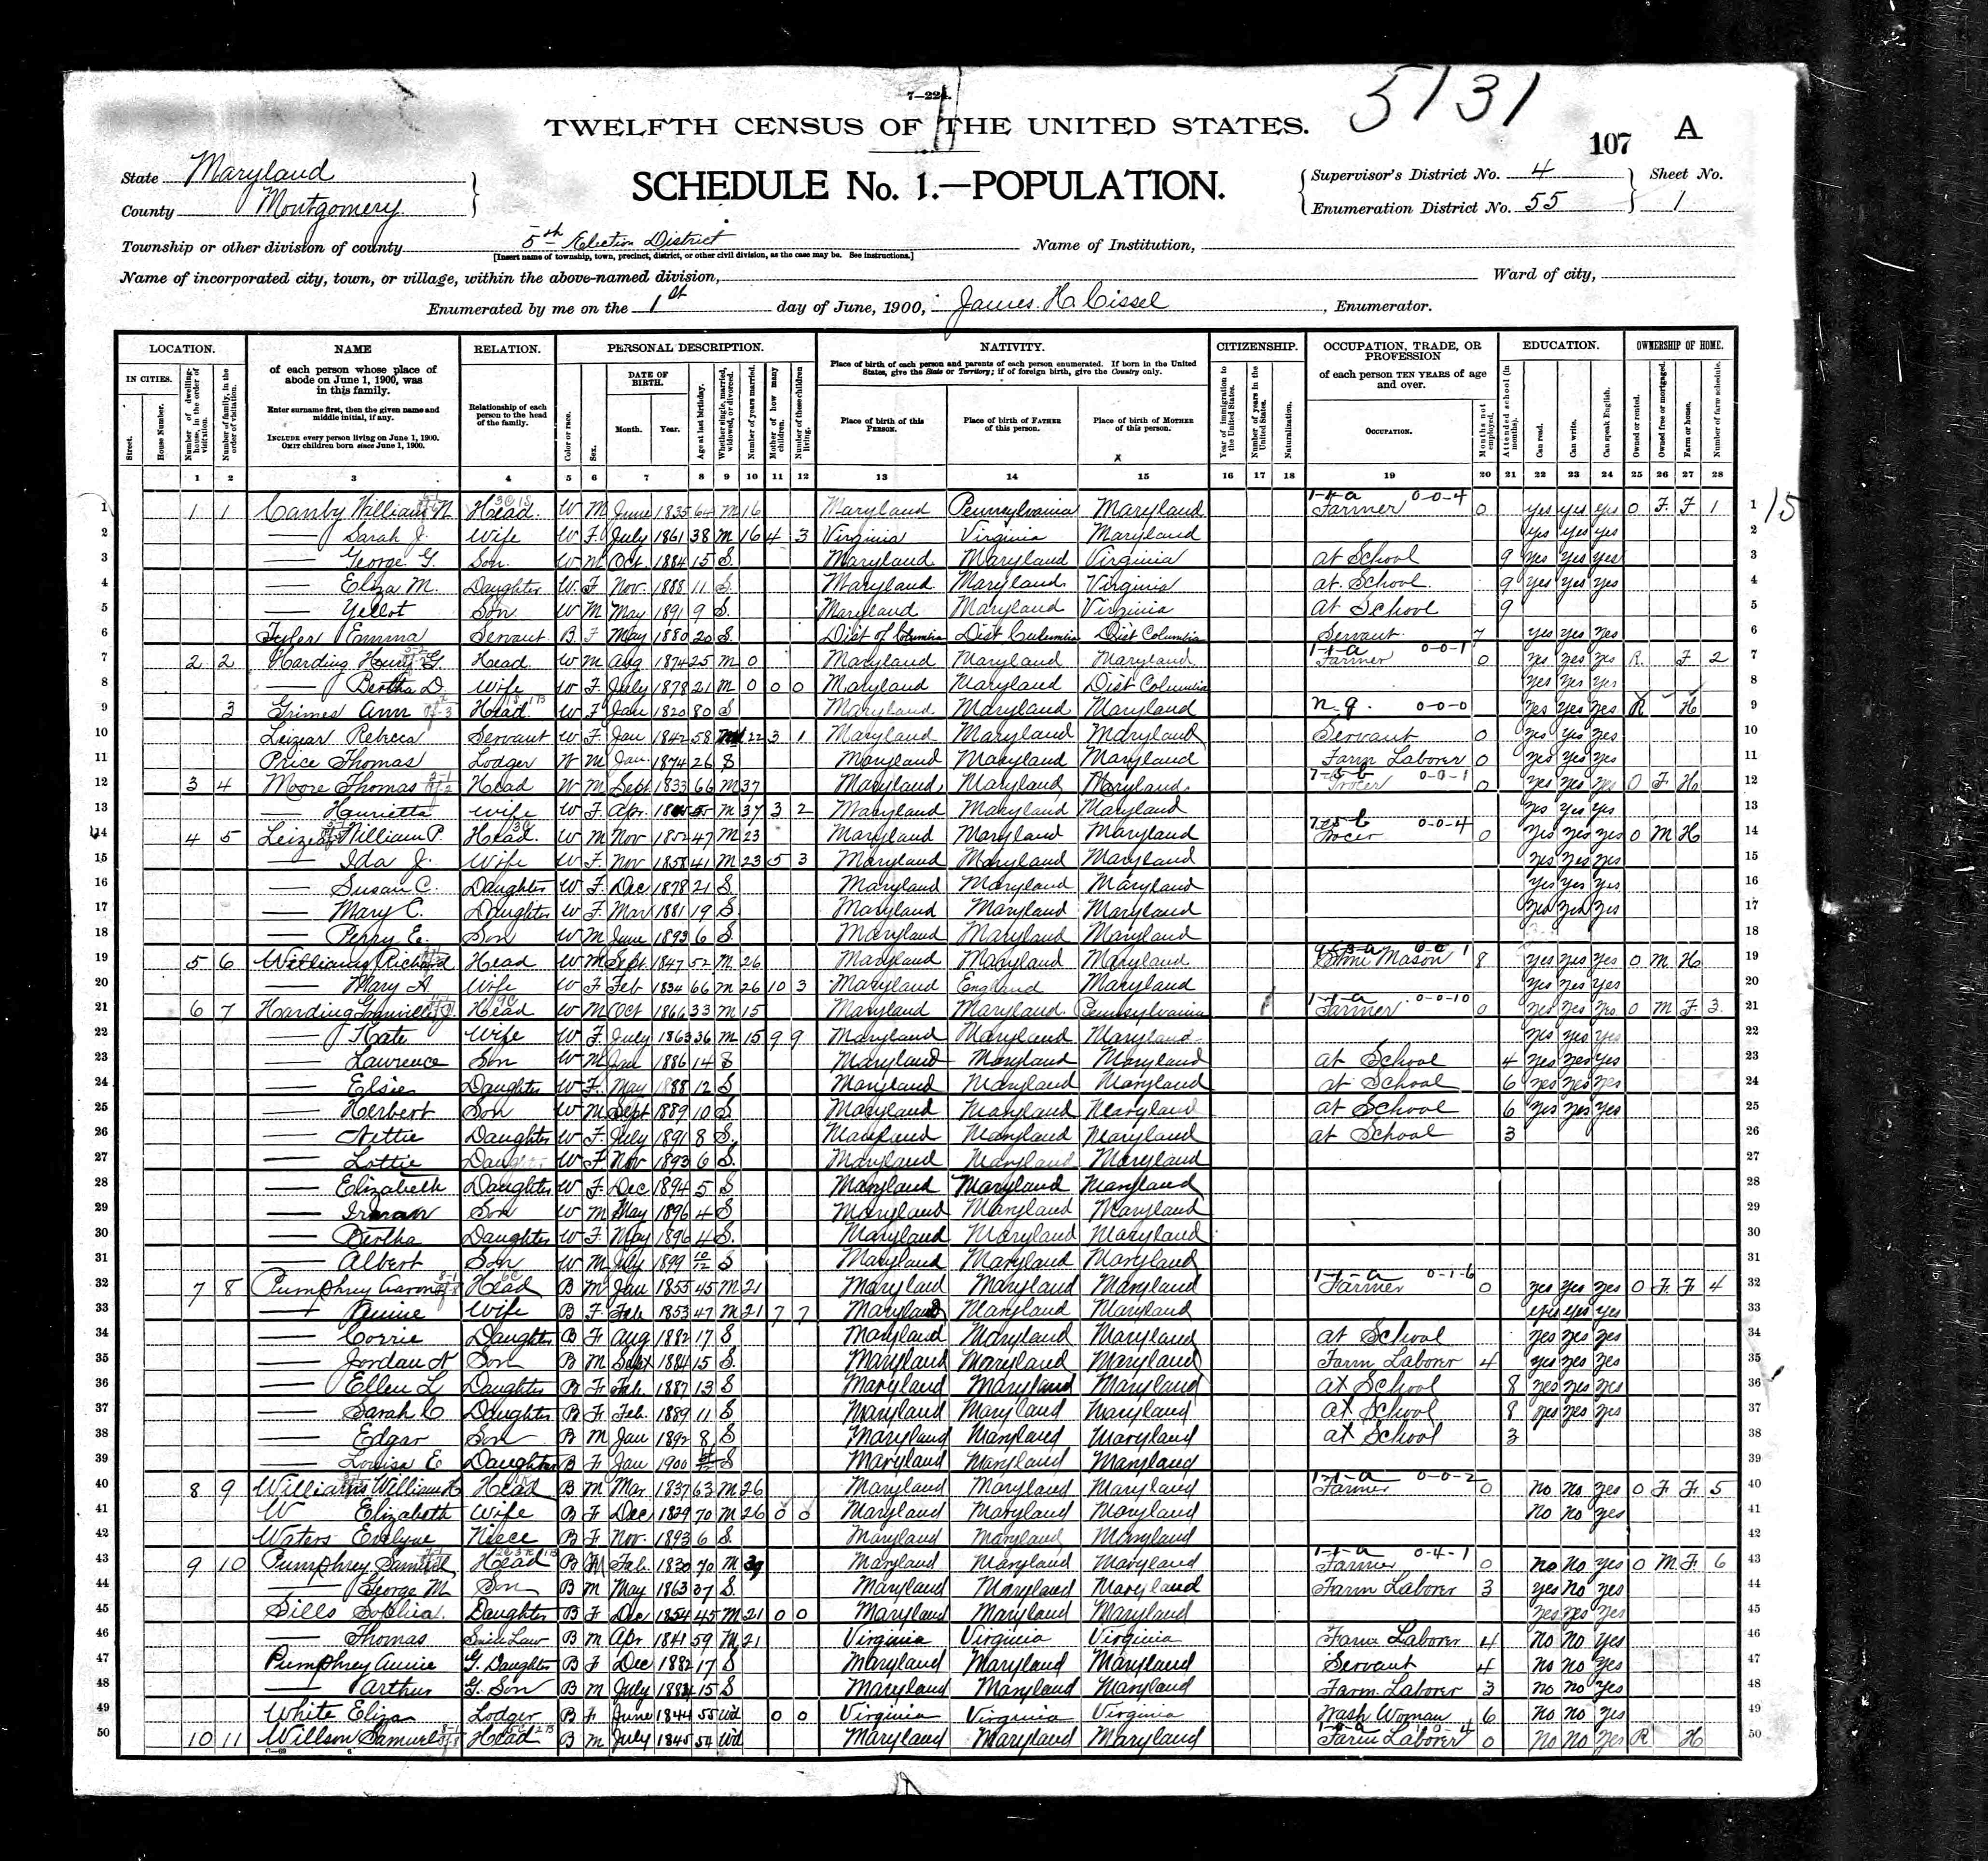 7—224.
5131
TWELFTH CENSUS OF THE UNITED STATES.
107 A
State Maryland
County Montgomery
SCHEDULE No. 1.—POPULATION.
Supervisor's District No. 4
Enumeration District No. 55
Sheet No. 1
Township or other division of county 5th Election District
[Insert name of township, town, precinct, district, or other civil division, as the case may be. See instructions.]
Name of Institution,
Name of incorporated city, town, or village, within the above-named division,
Ward of city,
Enumerated by me on the 1st day of June, 1900, James H. Cissel, Enumerator.
LOCATION. NAME RELATION. PERSONAL DESCRIPTION. NATIVITY. CITIZENSHIP. OCCUPATION, TRADE, OR PROFESSION EDUCATION. OWNERSHIP OF HOME.
IN CITIES. Street. House Number. Number of dwelling-house, in the order of visitation. Number of family, in the order of visitation.
of each person whose place of abode on June 1, 1900, was in this family.
Enter surname first, then the given name and middle initial, if any.
INCLUDE every person living on June 1, 1900. OMIT children born since June 1, 1900.
Relationship of each person to the head of the family.
Color or race. Sex. DATE OF BIRTH. Month. Year. Age at last birthday. Whether single, married, widowed, or divorced. Number of years married. Mother of how many children. Number of these children living.
Place of birth of each person and parents of each person enumerated. If born in the United States, give the State or Territory; if of foreign birth, give the Country only.
Place of birth of this PERSON. Place of birth of FATHER of this person. Place of birth of MOTHER of this person.
Year of immigration to the United States. Number of years in the United States. Naturalization.
of each person TEN YEARS of age and over.
OCCUPATION. Months not employed.
Attended school (in months). Can read. Can write. Can speak English. Owned or rented. Owned free or mortgaged. Farm or house. Number of farm schedule.
1 2 3 4 5 6 7 8 9 10 11 12 13 14 15 16 17 18 19 20 21 22 23 24 25 26 27 28
1 1 1 Canby William N Head W M June 1835 64 M 16 Maryland Pennsylvania Maryland Farmer 0 yes yes yes O F F 1 1 15
2 Sarah J. Wife W F July 1861 38 M 16 4 3 Virginia Virginia Maryland yes yes yes 2
3 George G. Son W M Oct 1884 15 S Maryland Maryland Virginia at School 9 yes yes yes 3
4 Eliza M. Daughter W F Nov 1888 11 S Maryland Maryland Virginia at School 9 yes yes yes 4
5 Yellot Son W M May 1891 9 S Maryland Maryland Virginia at School 9 5
6 Tyler Emma Servant B F May 1880 20 S Dist of Columbia Dist Columbia Dist Columbia Servant 7 yes yes yes 6
7 2 2 Harding Henry G. Head W M Aug 1874 25 M 0 Maryland Maryland Maryland Farmer 0 yes yes yes R F 2 7
8 Bertha D. Wife W F July 1878 21 M 0 0 0 Maryland Maryland Dist Columbia yes yes yes 8
9 3 Grimes Ann Head W F Jan 1820 80 S Maryland Maryland Maryland n.g. 0-0-0 yes yes yes R H 9
10 Leizear Rebecca Servant W F Jan 1842 58 22 3 1 Maryland Maryland Maryland Servant 0 yes yes yes 10
11 Price Thomas Lodger W M Jan 1874 26 S Maryland Maryland Maryland Farm Laborer 0 yes yes yes 11
12 3 4 Moore Thomas Head W M Sept 1833 66 M 37 Maryland Maryland Maryland Grocer 0 yes yes yes O F H 12
13 Henrietta Wife W F Apr 55 M 37 3 2 Maryland Maryland Maryland yes yes yes 13
14 4 5 Leizear William P. Head W M Nov 1852 47 M 23 Maryland Maryland Maryland Grocer 0 yes yes yes O M H 14
15 Ida J. Wife W F Nov 1858 41 M 23 5 3 Maryland Maryland Maryland yes yes yes 15
16 Susan C. Daughter W F Dec 1878 21 S Maryland Maryland Maryland yes yes yes 16
17 Mary C. Daughter W F Mar 1881 19 S Maryland Maryland Maryland yes yes yes 17
18 Perry E. Son W M June 1893 6 S Maryland Maryland Maryland 18
19 5 6 Williams Richard Head W M Sept 1847 52 M 26 Maryland Maryland Maryland Stone Mason 8 yes yes yes O M H 19
20 Mary A Wife W F Feb 1834 66 M 26 10 3 Maryland England Maryland yes yes yes 20
21 6 7 Harding Granville Head W M Oct 1866 33 M 15 Maryland Maryland Pennsylvania Farmer 0 yes yes yes O M F 3 21
22 Kate Wife W F July 1863 36 M 15 9 9 Maryland Maryland Maryland yes yes yes 22
23 Lawrence Son W M Jan 1886 14 S Maryland Maryland Maryland at School 4 yes yes yes 23
24 Elsie Daughter W F May 1888 12 S Maryland Maryland Maryland at School 6 yes yes yes 24
25 Herbert Son W M Sept 1889 10 S Maryland Maryland Maryland at School 6 yes yes yes 25
26 Nettie Daughter W F July 1891 8 S Maryland Maryland Maryland at School 3 26
27 Lottie Daughter W F Nov 1893 6 S Maryland Maryland Maryland 27
28 Elizabeth Daughter W F Dec 1894 5 S Maryland Maryland Maryland 28
29 Son W M May 1896 4 S Maryland Maryland Maryland 29
30 Bertha Daughter W F May 1896 4 S Maryland Maryland Maryland 30
31 Albert Son W M July 1899 10/12 S Maryland Maryland Maryland 31
32 7 8 Pumphrey Aaron Head B M Jan 1855 45 M 21 Maryland Maryland Maryland Farmer 0 yes yes yes O F F 4 32
33 Annie Wife B F Feb 1853 47 M 21 7 7 Maryland Maryland Maryland yes yes yes 33
34 Corrie Daughter B F Aug 1882 17 S Maryland Maryland Maryland at School yes yes yes 34
35 Jordan N Son B M Sept 1884 15 S Maryland Maryland Maryland Farm Laborer 4 yes yes yes 35
36 Ellen L Daughter B F Feb 1887 13 S Maryland Maryland Maryland at School 8 yes yes yes 36
37 Sarah C Daughter B F Feb 1889 11 S Maryland Maryland Maryland at School 8 yes yes yes 37
38 Edgar Son B M Jan 1892 8 S Maryland Maryland Maryland at School 3 38
39 Louisa E Daughter B F Jan 1900 S Maryland Maryland Maryland 39
40 8 9 Williams William H Head B M Mar 1837 63 M 26 Maryland Maryland Maryland Farmer 0 no no yes O F F 5 40
41 W Elizabeth Wife B F Dec 1829 70 M 26 0 0 Maryland Maryland Maryland no no yes 41
42 Waters Evelyne Niece B F Nov 1893 6 S Maryland Maryland Maryland 42
43 9 10 Pumphrey Samuel Head B M Feb 1830 70 M 39 Maryland Maryland Maryland Farmer 0 no no yes O M F 6 43
44 George M Son B M May 1863 37 S Maryland Maryland Maryland Farm Laborer 3 yes no yes 44
45 Sills Sophia Daughter B F Dec 1854 45 M 21 0 0 Maryland Maryland Maryland yes yes yes 45
46 Thomas B M Apr 1841 59 M 21 Virginia Virginia Virginia Farm Laborer 4 no no yes 46
47 Pumphrey Annie G. Daughter B F Dec 1882 17 S Maryland Maryland Maryland Servant 4 no no yes 47
48 Arthur G. Son B M July 1884 15 S Maryland Maryland Maryland Farm Laborer 3 no no yes 48
49 White Eliza Lodger B F June 1844 55 Wd 0 0 Virginia Virginia Virginia Wash Woman 6 no no yes 49
50 10 11 Willson Samuel Head B M July 1845 54 Wd Maryland Maryland Maryland Farm Laborer 0 no no yes R H 50